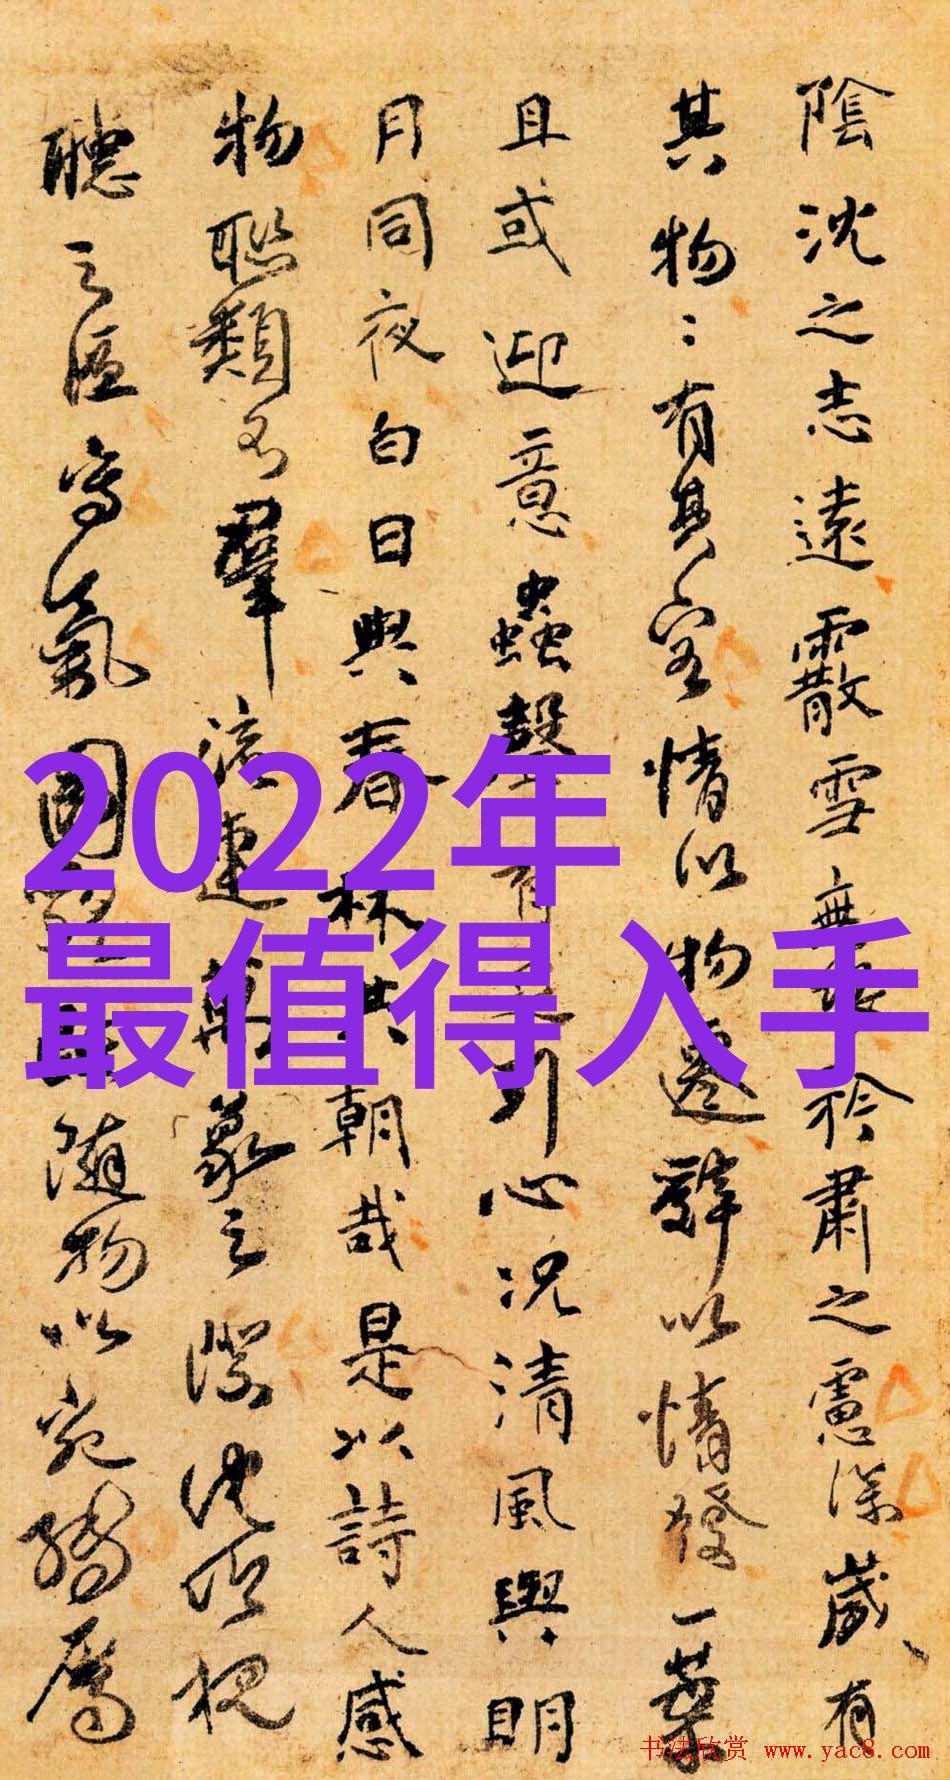 陰沈之志遠霰雪無垠矜肅之慮深歲有
其物物有其容情以物遷辭以情發一葉
且或迎意蟲聲有足引心況清風與明
月同夜白日與春林共朝哉是以詩人感
物聯類不窮流連萬象之際沈吟視
聽之區寫氣圖貌既隨物以宛轉屬
2022年
最值得入手
书法欣赏 www.yac8.com